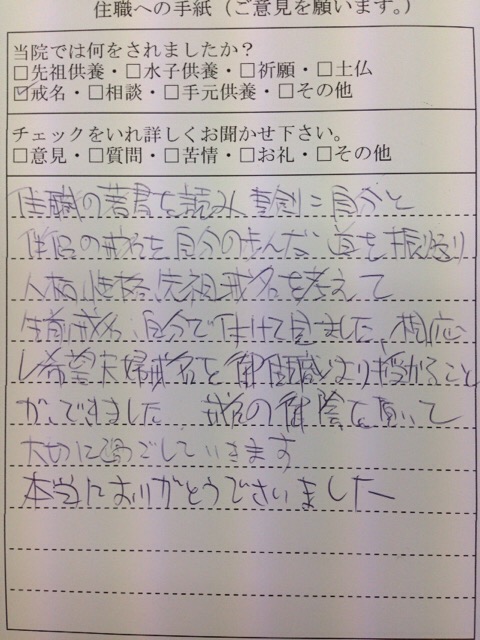 住職への手紙（ご意見を願います。）
当院では何をされましたか？
□先祖供養・□水子供養・□祈願・□土仏
☑戒名・□相談・□手元供養・□その他
チェックをいれ詳しくお聞かせ下さい。
□意見・□質問・□苦情・□お礼・□その他
住職の著書を読み 真剣に自分と
伴侶の戒名を自分の歩んだ 道を振返り
人柄 性格 先祖 戒名を考えて
生前戒名、自分で付けて見ました、相応
し希望夫婦戒名を御住職より授かること
ができました 戒名の御陰を頂いて
大切に過ごしていきます
本当にありがとうございました